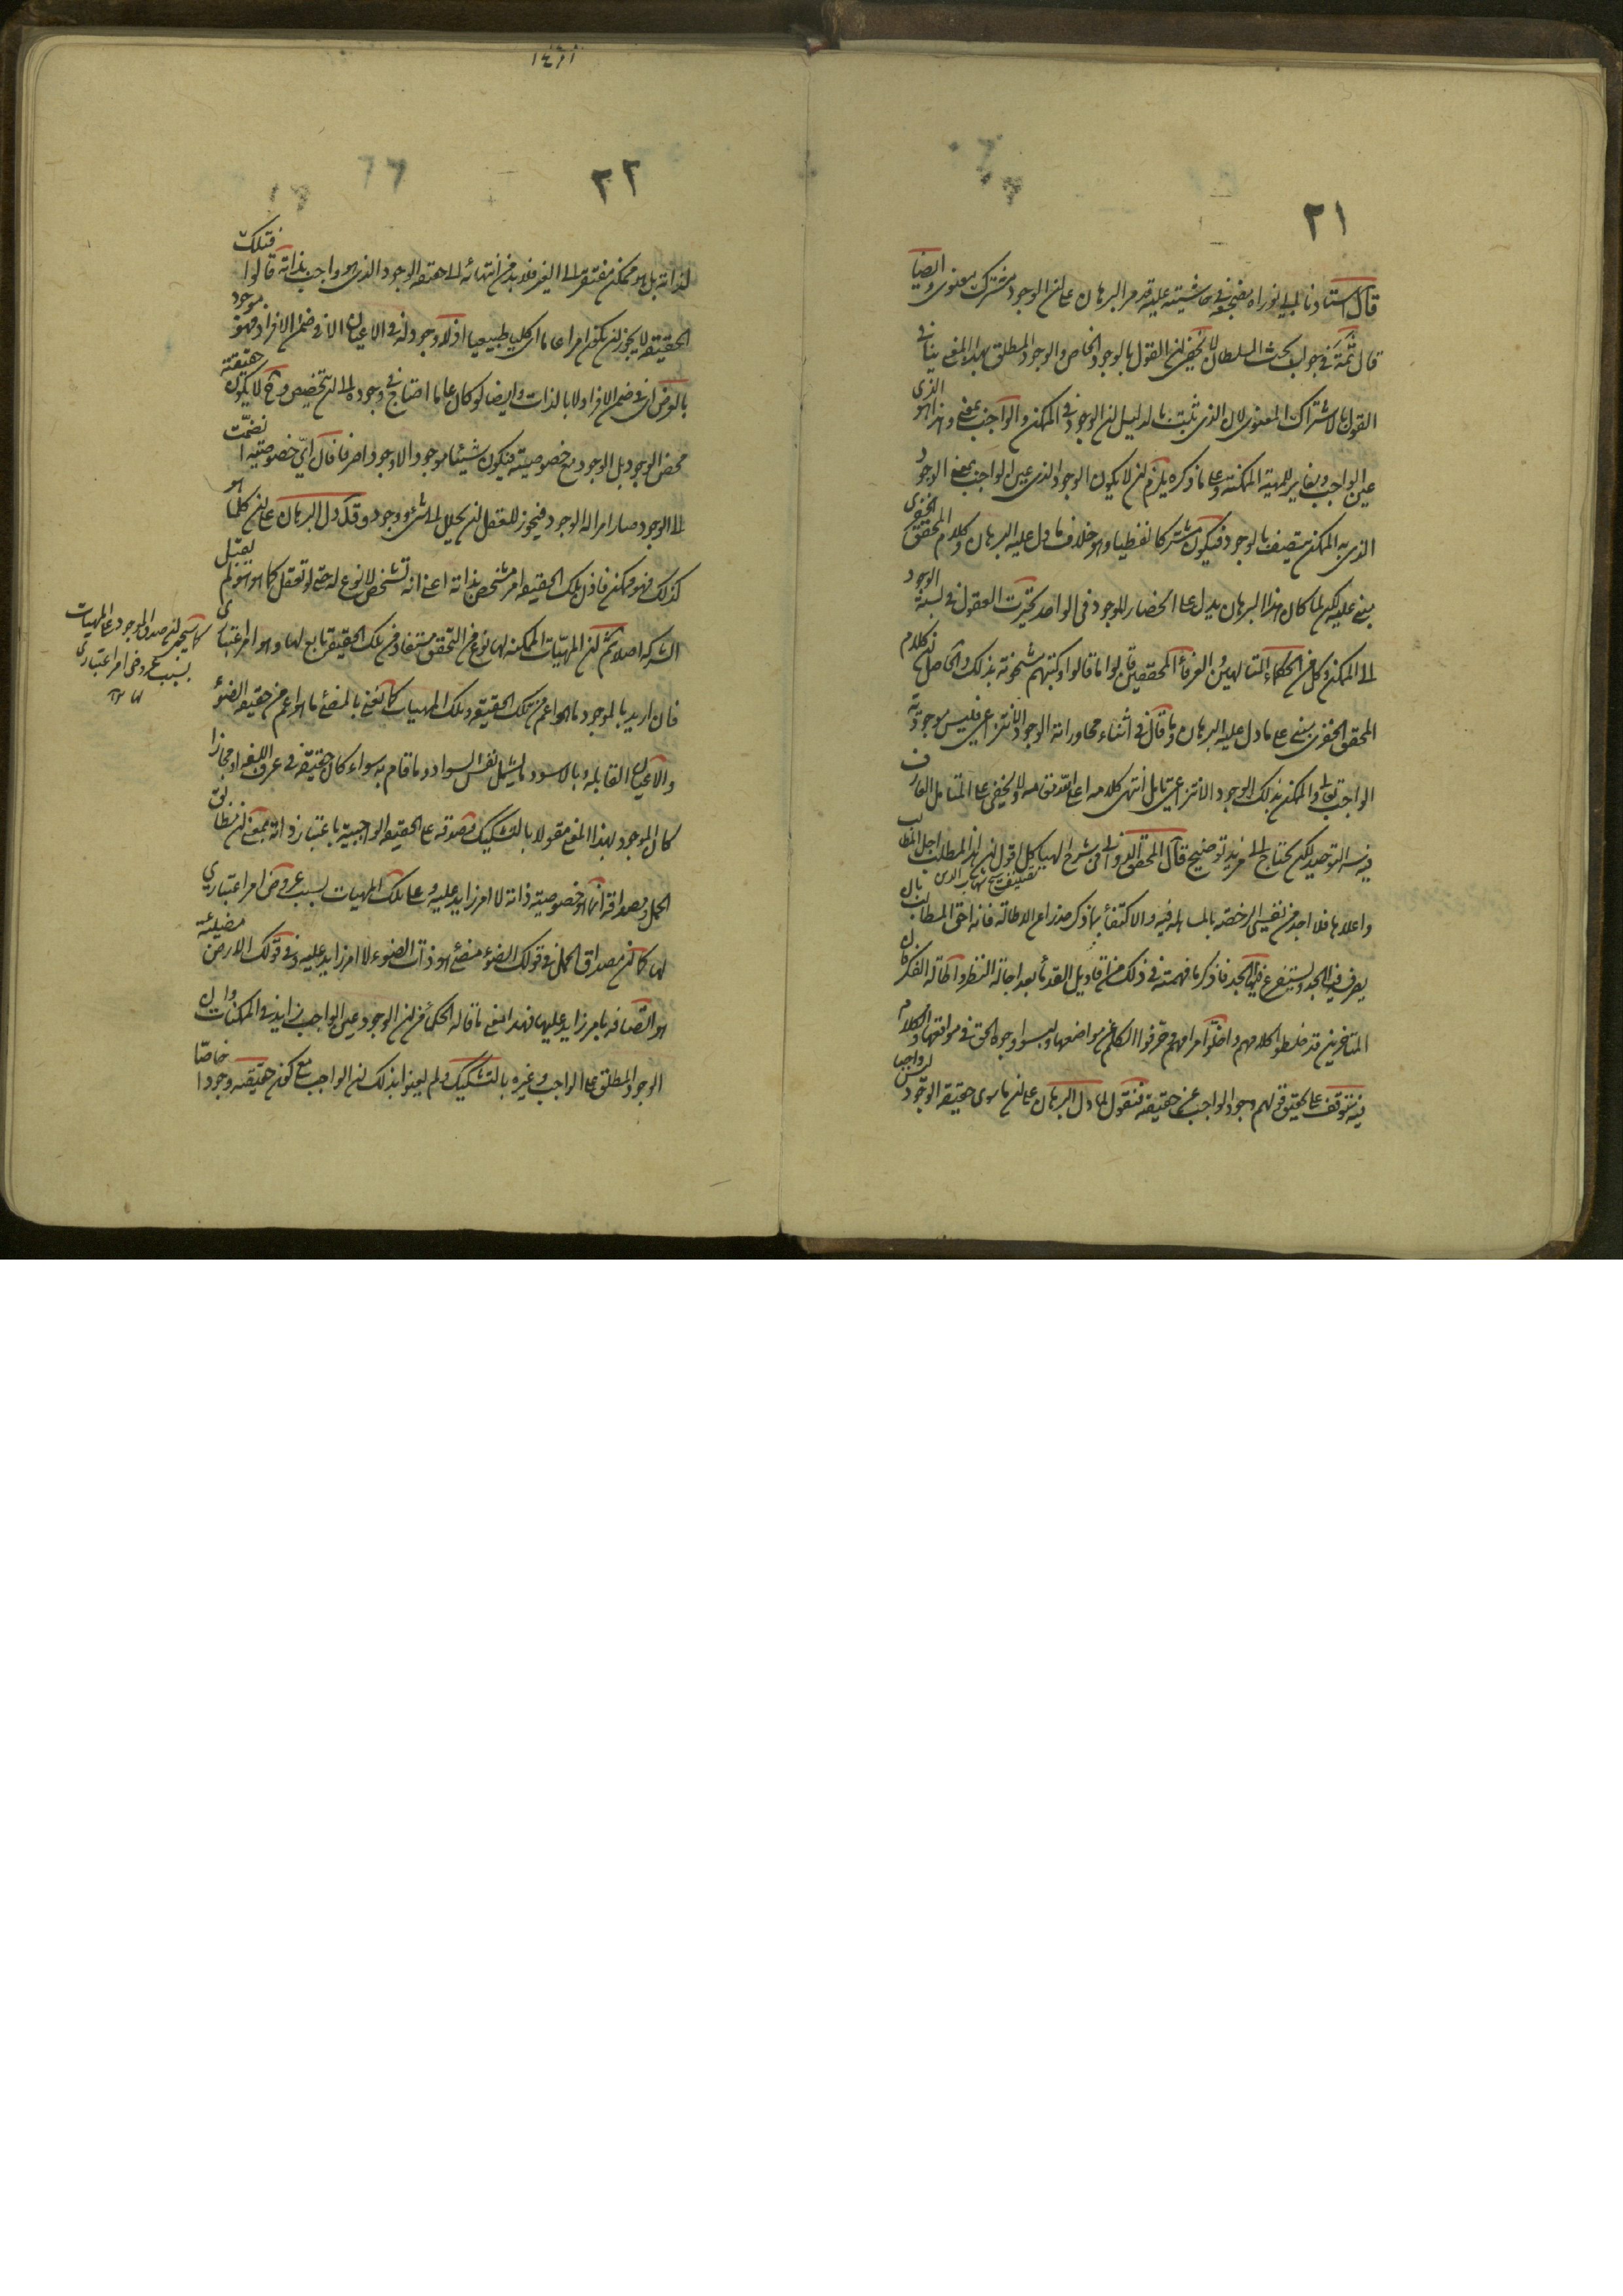 ٢١
قال استادنا الهي نور الله مضجعه في حاشيته عليه قد مر البرهان على ان الوجود مشترك معنوي وايضا
قال ثمة في جواب بحث السلطان لا يخفى ان القول بالوجود الخاص والوجود المطلق بهذا المعنى ينافي
القول بالاشتراك المعنوي لان الذي ثبت بالدليل ان الوجود في الممكن والواجب بمعنى وهذا هو الذي
عين الواجب ويغاير للمهية الممكنة وعلى ما ذكره يلزم ان لا يكون الوجود الذي عين الواجب بمعنى الوجود
الذي به الممكن يتصف بالوجود فيكون مشتركا لفظيا وهو خلاف ما دل عليه البرهان وكلام المحقق الخفري
يبنى عليه لكن لما كان هذا البرهان يدل على انحصار الوجود في الواحد تحيرت العقول في نسبة الوجود
الى الممكن وكل من الحكماء المتالهين والعرفاء المحققين قالوا ما قالوا وكتبهم مشحونة بذلك والحاصل ان كلام
المحقق الخفري يبنى على ما دل عليه البرهان وما قال في اثناء محاوراته الوجود الانتزاعي فليس موجودية
الواجب تعالى والممكن بذلك الوجود الانتزاعي تامل انتهى كلامه اعلى الله مقامه ولا يخفى على المتامل العارف
فيه التوحيد لكن يحتاج الى مزيد توضيح قال المحقق الدواني في شرح الهياكل اقول ان هذا المطلب اجل المطالب
تصنيف شيخ شهاب الدين
واعلاها فلا اجد من نفسي الرخصة بالمساهلة فيه والاكتفاء بما ذكر حذرا عن الاطالة فانه احق المطالب بان
يصرف فيه الجد ويستفرغ فيها الجهد فاذكر ما فهمته في ذلك من اقاويل القدماء بعد اجالة النظر واطالة الفكر فان
المتاخرين قد خلطوا كلامهم واخلوا مرامهم وحرفوا الكلم عن مواضعها ولبسوا وجوه الحق في مواقعها والكلام
فيه يتوقف على تحقيق قولهم وجود الواجب عين حقيقته فنقول لما دل البرهان على ان ما سوى حقيقة الوجود ليس واجبا
٢٢
لذاته بل هو ممكن مفتقر الى الغير فلابد من انتهائه الى حقيقة الوجود الذي هو واجب بذاته قالوا فتلك
الحقيقة لا يجوز ان يكون امرا عاما اي كليا طبيعيا اذ لا وجود له في الاعيان الا في ضمن الافراد فهو موجود
بالعرض اي في ضمن الافراد لا بالذات وايضا لو كان عاما احتاج في وجوده الى ان يتخصص وح لا يكون حقيقته
محض الوجود بل الوجود مع خصوصيته فيكون شيئا موجودا لا وجودا صرفا فان اي خصوصية انضمت
الى الوجود صار امرا له الوجود فيجوز للعقل ان يحلل الى شيء ووجود وقد دل البرهان على ان كلما هو
كذلك فهو ممكن فاذن تلك الحقيقة امر متشخص بذاته اعني انه تشخص لا نوع له حتى لو تعقل كما هو هو لم يقبل
الشركة اصلا ثم ان المهيات الممكنة لها نوع من التحقق مستفاد من تلك الحقيقة تابع لها وهو امر اعتباري
فان اريد بالموجود ما هو اعم من تلك الحقيقة وتلك المهيات كما نعني بالمضيء ما هو اعم من حقيقة الضوء
والاعيان القابلة وبالاسود ما يشمل نفس السواد وما قام به سواء كان حقيقة في عرف اللغة او مجازا
كان الموجود بهذا المعنى مقولا بالتشكيك فصدقه على الحقيقة الواجبية باعتبار ذاته بمعنى ان مطابق
الحمل ومصداقه انما هو خصوصية ذاته لا امر زايد عليه وعلى تلك المهيات بسبب عروض امر اعتباري
لها كما ان مصداق الحمل في قولك الضوء مضيء هو ذات الضوء لا امر زايد عليه وفي قولك الارض مضيئة
هو اتصافه بامر زايد عليها فهذا معنى ما قاله الحكماء من ان الوجود عين الواجب زايد في الممكنات وان
الوجود المطلق على الواجب وغيره بالتشكيك ولم يعنوا بذلك ان الواجب مع كون حقيقته وجودا خاصا
كما سيجيء ان صدق الموجود على المهيات
بسبب عروض امر اعتباري